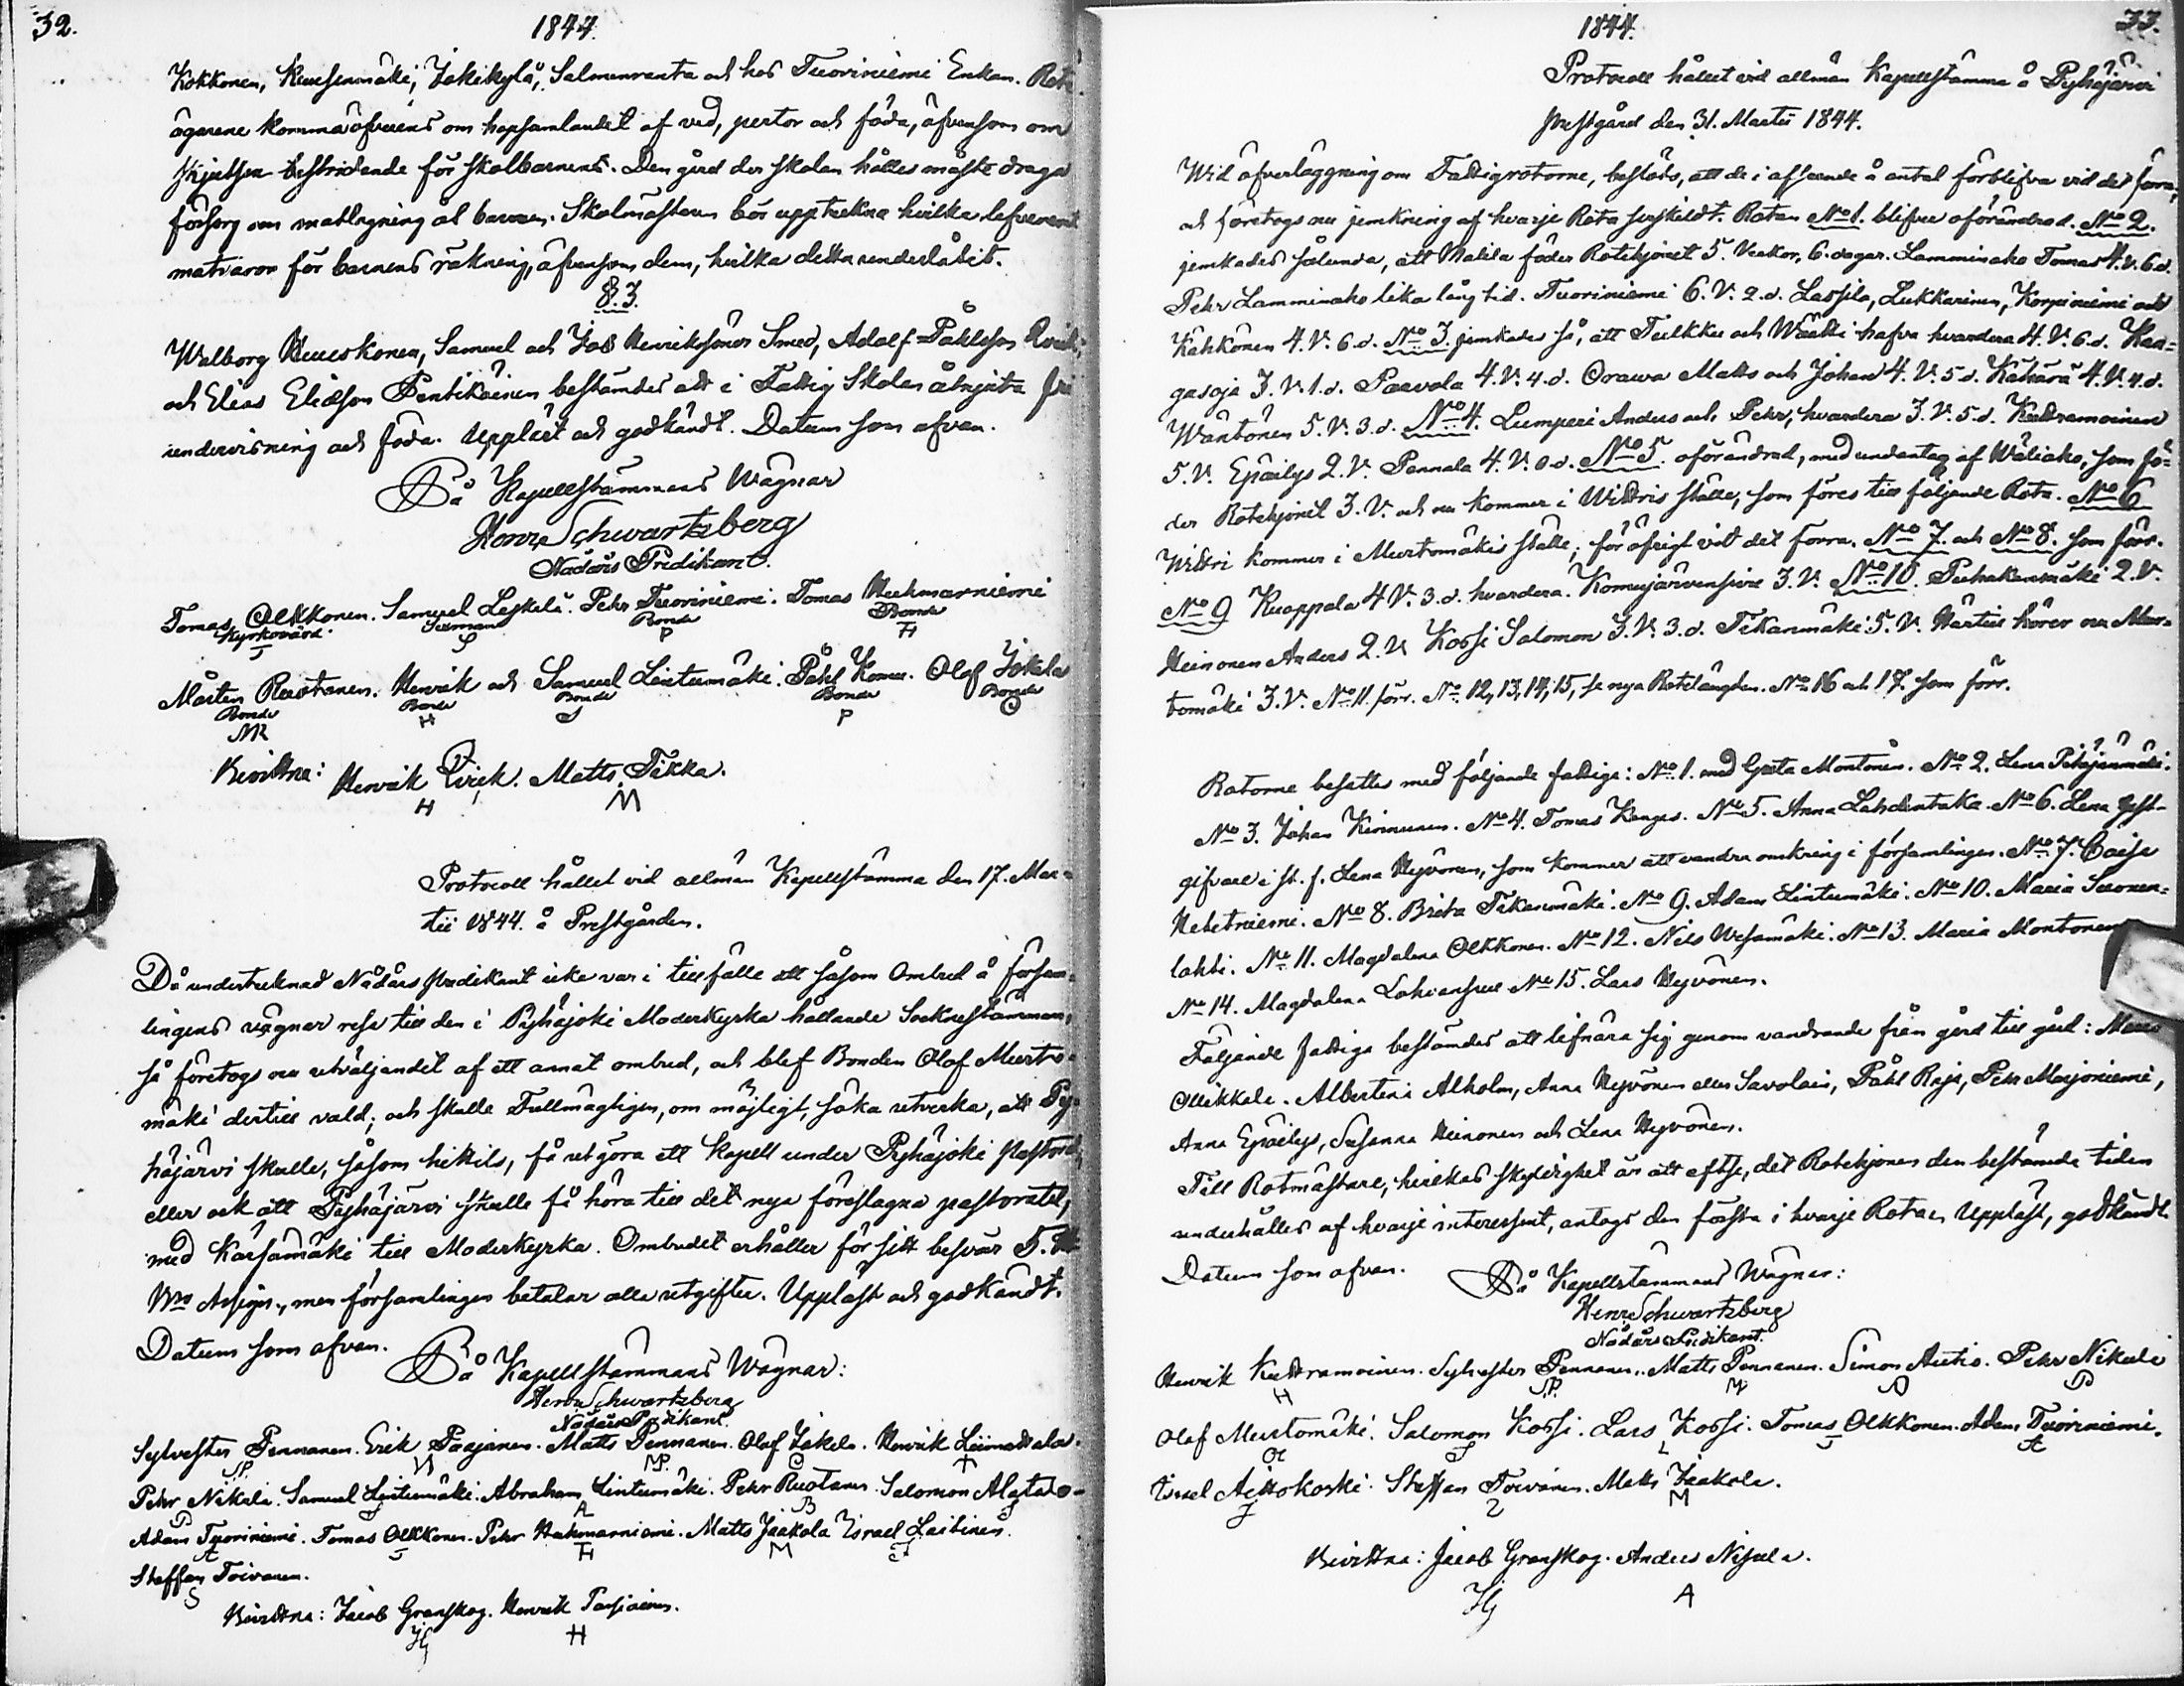 32.
1844.
Kokkonen, Kuusenmäki, Jokikylä, Salmenranta och hos Tuoriniemi Enkan. Rote-
ägarene komma öfverens om hopsamlandet af ved, pertor och föda, äfvensom om
skjutsen bestridande för skolbarnens. Den gård der skolan hålles måste draga
försorg om matlagning åt barnen. Skolmästaren bör uppteckna hvilka lefvererat
matvaror för barnens räkning, äfvensom dem, hvilka detta underlåtit.
§. 3.
Walborg Heiskonen, Samuel och Job Henrikssöner Smed, Adolf Påhlsson
och Elias Eliasson Pentikäinen bestämdes att i Fattig Skolan åtnjuta fri
undervisning och föda. Uppläst och godkändt. Datum som ofvan.
På Kapellstämmans Wägnar
Henr. Schwartzberg
Nådårs Predikant.
Tomas Olkkonen. Samuel Leskelä. Pehr Tuoriniemi. Tomas Huhmarniemi
Kyrkovärd. Sexman Bonde Bonde
T S P TH
Mårten Ruotanen. Henrik och Samuel Lintumäki. Påhl Komu. Olof Jokela
Bonde Bonde Bonde Bonde Bonde
MR H S P O
Bevittna: Henrik Qvick. Matts Tikka.
H M
Protocoll hållet vid allmän Kapellstämma den 17. Mar-
tii 1844. å Prestgården.
Då undertecknad Nådårs predikant icke var i tillfälle att såsom Ombud å försam-
lingens vägnar resa till den i Pyhäjoki Moderkyrka hållande Sockne stämman,
så företogs nu utväljandet af ett annat ombud, och blef Bonden Olof Murto-
mäki dertill vald; och skulle Fullmägtigen, om möjligt, söka utverka, att Py-
häjärvi skulle, såsom hittils, få utgöra ett Kapell under Pyhäjoki Pastorat,
eller ock att Pyhäjärvi skulle få höra till det nya föreslagna pastoratet,
med Kärsämäki till Moderkyrka. Ombudet erhåller för sitt besvär 5.
Bco Assign., men församlingen betalar alla utgifter. Uppläst och godkändt.
Datum som ofvan.
På Kapellstämmans Wägnar:
Henr. Schwartzberg
Nådårs Predikant.
Sylvester Pennanen. Erik Paajanen. Matts Pennanen. Olof Jokela. Henrik Liimattala.
SP. MP. O
Pehr Nikula. Samuel Lintumäki. Abraham Lintumäki. Pehr Ruotanen. Salomon Alatalo.
P S A B S
Adam Tuoriniemi. Tomas Olkkonen. Pehr Huhmarniemi. Matts Jaakola Israel Laitinen.
A T TH M I
Steffan Toivanen.
S
Bevittna: Jacob Granskog. Henrik Parsiainen.
JG H
1844.
33.
Protocoll hållet vid allmän Kapellstämma å Pyhäjärvi
prestgård den 31. Martii 1844.
Wid öfverläggning om Fattigrotorne, beslöts, att de i afseende å antal förblifva vid det förra,
och företogs nu jemkning af hvarje Rota serskildt. Rotan No 1. blifver oförändrad. No 2.
jemkades sålunda, att Malila föder Rotehjonet 5. Veckor, 6. dagar. Lamminaho Tomas 4. v. 6 d.
Pehr Lamminaho lika lång tid. Tuoriniemi 6. V. 2. d. Lassila, Lukkarinen, Korpiniemi och
Kähkönen 4. V. 6. d. No 3. jemkades så, att Tulkku och Wäätti hafva hvardera 4. V. 6. d. Kan-
gasoja 3. V. 1. d. Paavola 4. V. 4. d. Orawa Matts och Johan 4. V. 5 d. Kähärä 4. V. 4. d.
Wäntönen 5. V. 3. d. No 4. Lumperi Anders och Pehr, hvardera 3. V. 5. d. Kuttramoinen
5. V. Epäilys 2. V. Pennala 4. V. 0 d. No 5. oförändrad, med undantag af Wäliaho, som fö-
der Rotehjonet 3. V. och nu kommer i Widtris ställe, som föres till följande Rota. No 6
Widtri kommer i Murtomäkis ställe; för öfrigt vid det förra. No 7. och No 8. som förr.
No 9 Kuoppala 4 V. 3. d. hvardera. Komujärvensivu 3. V. No 10. Puhakanmäki 2. V.
Heinonen Anders 2. V. Kossi Salomon 3. V. 3. d. Tikanmäki 5. V. Härtill hörer nu Mur-
tomäki 3. V. No 11. förr. No 12, 13, 14, 15, se nya Rotelängden. No 16 och 17. som förr.
Rotorne besattes med följande fattiga: No 1. med Greta Montonen. No 2. Lena Pitäjänmäki.
No 3. Johan Kinnunen. No 4. Tomas Kangas. No 5. Anna Lahdentaka. No 6. Lena Gäst-
gifvare i st. f. Lena Hyvönen, som kommer att vandra omkring i församlingen. No 7. Caisa
Hetetniemi. No 8. Brita Tikanmäki. No 9. Adam Lintumäki. No 10. Maria Suonen-
lahti. No 11. Magdalena Olkkonen. No 12. Nils Wesamäki. No 13. Maria Montonen
No 14. Magdalena Lohiansuu No 15. Lars Hyvönen.
Följande fattiga bestämdes att lifnära sig genom vandrande från gård till gård:
Ollikkala. Albertina Alholm, Anna Hyvönen eller Savolain, Påhl Raja, Pehr Marjoniemi,
Anna Epäilys, Susanna Heinonen och Lena Hyvönen.
Till Rotmästare, hvilkas skyldighet är att eftse, det Rotehjonen den bestämda tiden
underhålles af hvarje interessent, antogs den första i hvarje Rota. Uppläst, godkändt.
Datum som ofvan.
På Kapellstämmans Wägnar:
Henr. Schwartzberg
Nådårs Predikant.
Henrik Kuttramoinen. Sylvester Pennanen. Matts Pennanen. Simon Autio. Pehr Nikula
H SP. M P
Olof Murtomäki. Salomon Kossi. Lars Kossi. Tomas Olkkonen. Adam Tuoriniemi.
S L T A
Israel Aittokoski. Steffan Toivanen. Matts Jaakola.
I M
Bevittna: Jacob Granskog. Anders Nisula.
JG A